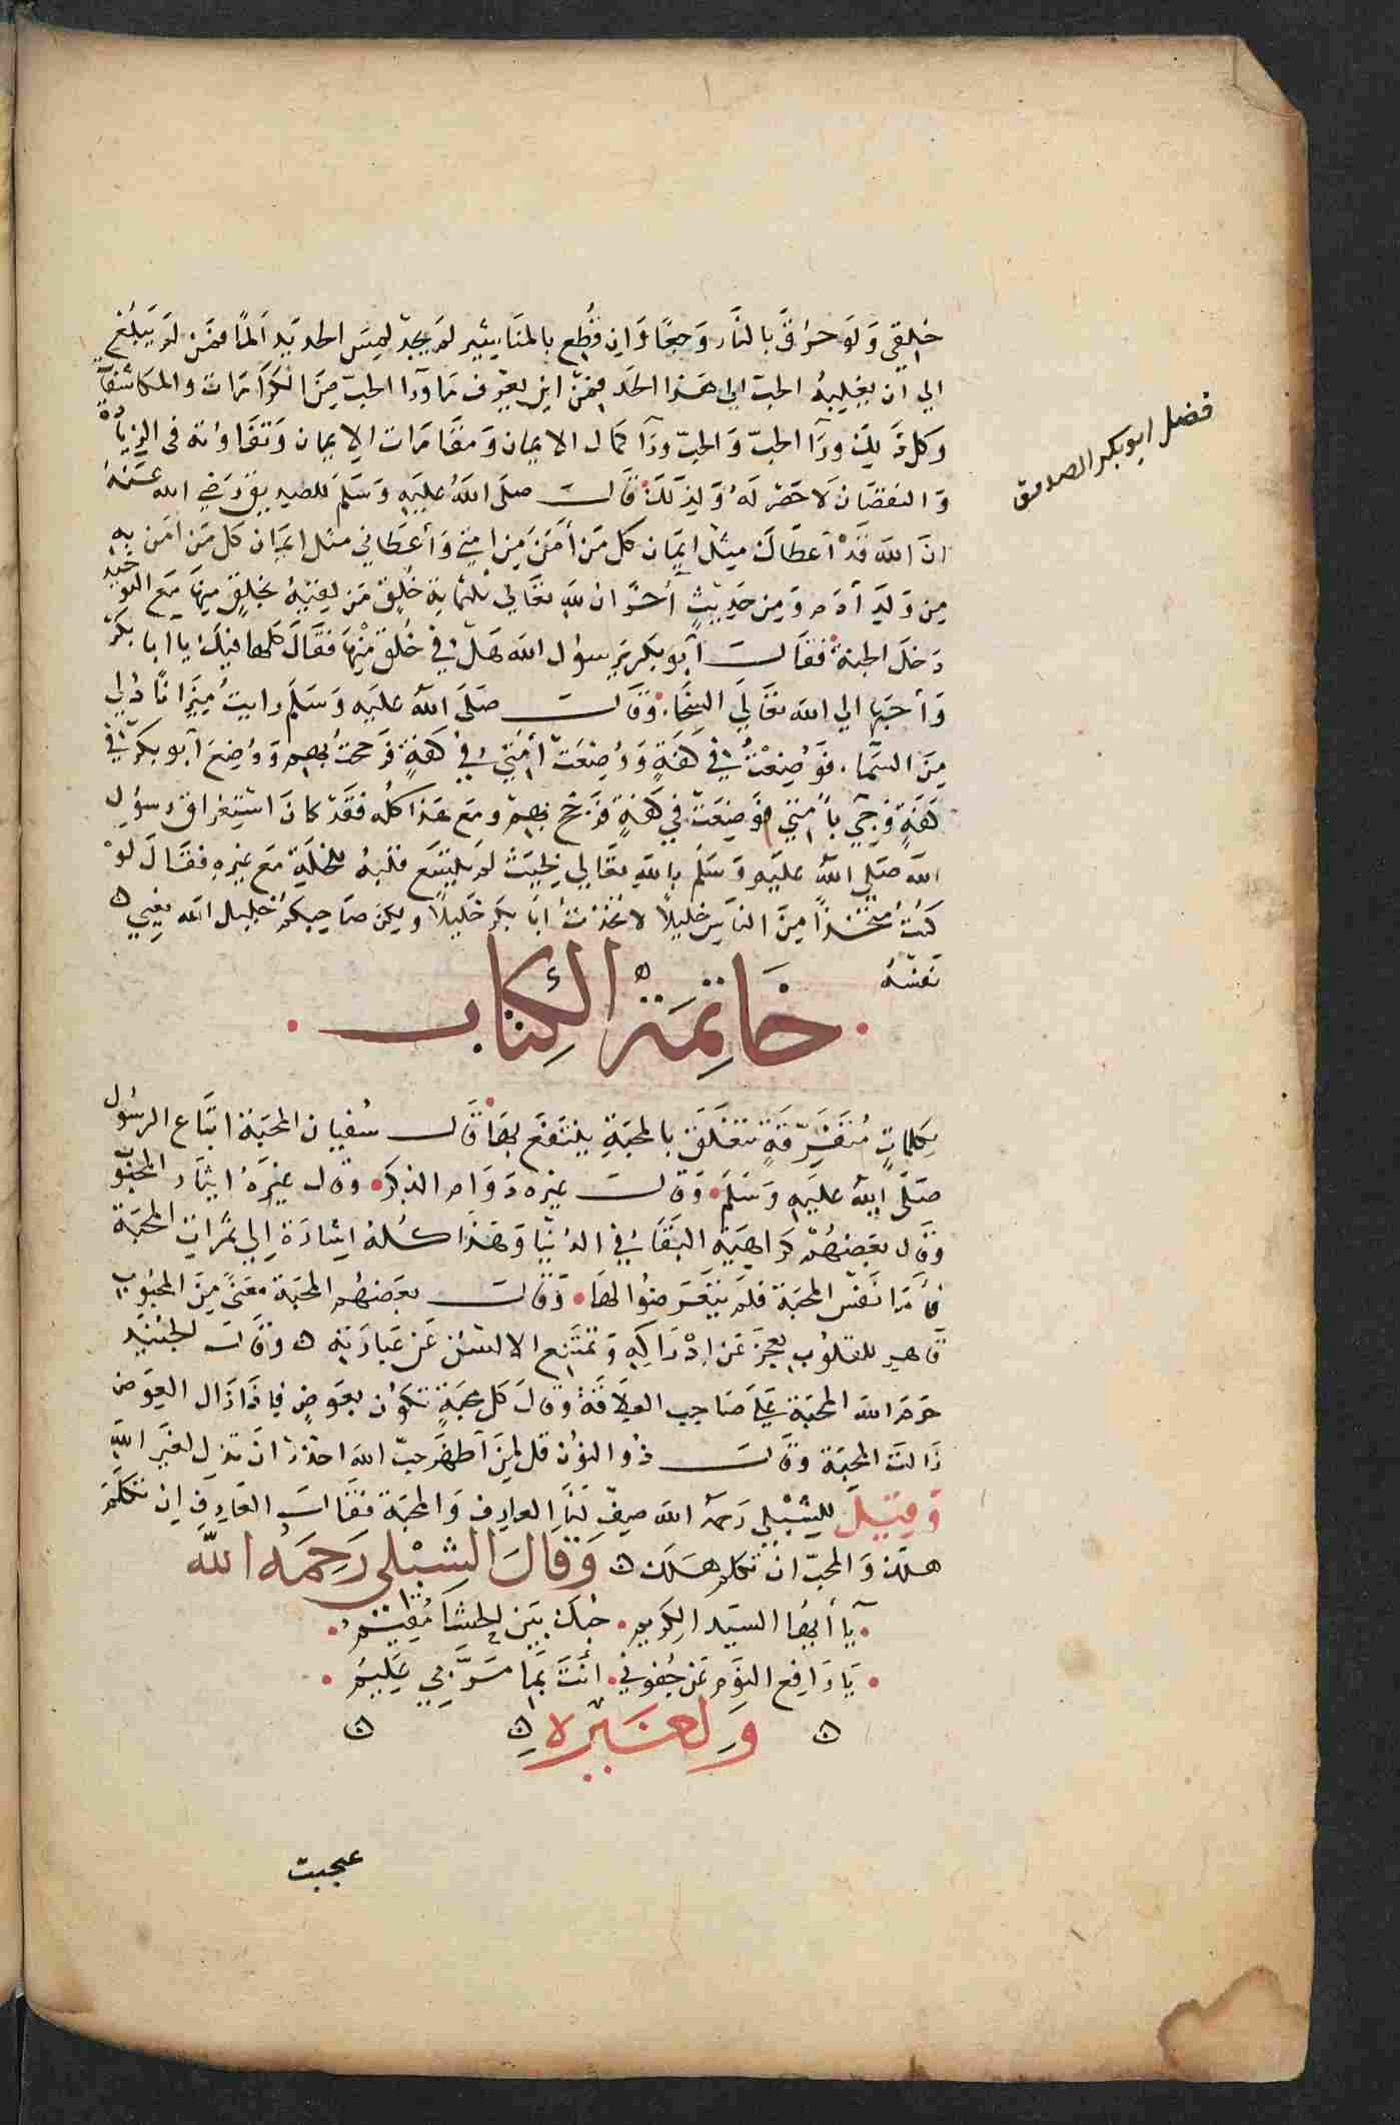 خلقي وَلَو حرُقَ بالنَّار وَجعًا وَان قُطِع بالمنَاشير لم يجدْ لمِسَ الحديَد اَلمًا فمَن لَم يَبلغ
الي ان يغلِبهُ الحبّ الى هَذا الحَد فمَن اين يعرِف مَا ورآا الحبّ مِنَ الكَرامَات والمكاشفات
وَكل ذَلِك ورَآ الحبّ وَالحبّ ورَآ كمَال الايمان وَمقَامَات الايمان وَتفَاوُته فى الزيادَة
وَالنقصَان لَا حَصْر لَهُ وَلِذَلكَ قَالَ صلَى اللهُ عليَهِ وَسَلمَ للصِدِيق رَضِي الله عَنهُ
انَ اللهَ قَدْ أعطَاكَ مِثْل ايمَان كل مَن أمَنَ بي مِن امتي وَأعطَاني مثل ايمَان كل مَن أمَن بِهِ
مِن وَلَدِ أدَم وَمِن حَدِيثٍ أخَرَ ان للهِ تعَالى ثلثماية خُلِق مَن لقيَهُ بخلقٍ مِنهَا مَع التوحيد
دَخلَ الجنة فقَالَ أبو بكَر يَرسوُل الله هَل فيَ خُلق مِنْهَا فقَالَ كلها فيكَ يا ابا بكر
وَأحَبهَا الي الله تعَالَي السَّخَا وَقَالَ صَلَى اللهُ عليَهِ وَسَلَم رايتُ مِيَزانًا دُلي
مِنَ السَّمَا فوَُضِعْتُ فيْ كَفةٍ وَوُضِعَتْ أمَتيْ فيْ كفةٍ فَرجحتُ بهم وَوُضِعَ أبو بكرْ فيْ
كفَةٍ وَجِيَ بأُمتيْ فوضِعَتْ في كفةٍ فَرَجحَ بهمْ ومَع هَذا كلُه فقَدْ كانَ اسْتِغراق رسوُل
الله صَلى اللهُ عليَهِ وَسَلم بالله تعَالي بحَيثُ لم يتسَع قلبُهُ للخلَةِ مَع غيرهِ فقَالَ لوْ
كنتُ مُتخِذاً مِنَ النَاسِ خليلاً لاتخَذتُ ابَا بكرَ خَليلاً ولكِن صَاحِبكمُ خَليل الله يعني
نفسَهُ
خَاتِمَةُ الكِتَاب
بكِلمَاتٍ مُتفَرِقَةٍ تتعَلق بالمحبَةِ ينتَفعَ بهَا قَالَ سُفيان المحبَة اتبَاع الرسُول
صَلَى اللهُ عليَهِ وَسَلَم وَقالَ غيره دَوَام الذِكر وقال غيرَهُ ايثَار المحبوُب
وقال بعَضهُمْ كرَاهِيَة البَقَا في الدُنيَا وَهَذَا كُله اِشَارَة اِلي ثمَرَاتِ المحبَة
فأمَّا نَفسَ المحبَة فَلم يتعَرَضوُا لهَا وَقَالَ بعَضهُم المحبَة معَنىً مِنَ المحبُوب
قَاهِر للقلوُب يعجز عَن اِدْرَاكِهِ وَتمتَنِع الالسُن عَن عبَارَتِهِ وَقَالَ الجُنيَد
حَرَمَ الله المحبَة عَليَ صَاحِب العِلَاقَة وَقال كل محَبةٍ تكوُن بعِوَضٍ فاِذَا زَال العِوَض
زَالتَ المحبَة وقَالَ ذُو النوُن قل لِمَن أظهَر حبّ الله احذر انَ تذل لغَير الله
وَقِيْلَ للشِبْلِي رَحمهُ الله صِفْ لنَا العارِف وَالمحبّ فقَالَ العَارِف اِن تكلَم
هلَكَ وَالمحبّ ان سَكت هَلك وَقَالَ الشِبْلي رَحِمَهُ الله
يَآ أيهُا السَيد الكِريم حُبكَ بَيَن الحشَا مُقيْمُ
يَا رَافِع النوَم عَن جُفوني أنَتَ بمَا مَرَّ بي عَليمُ
وَلِغَيْرِهِ
عجبت
فضل ابو بكر الصديق